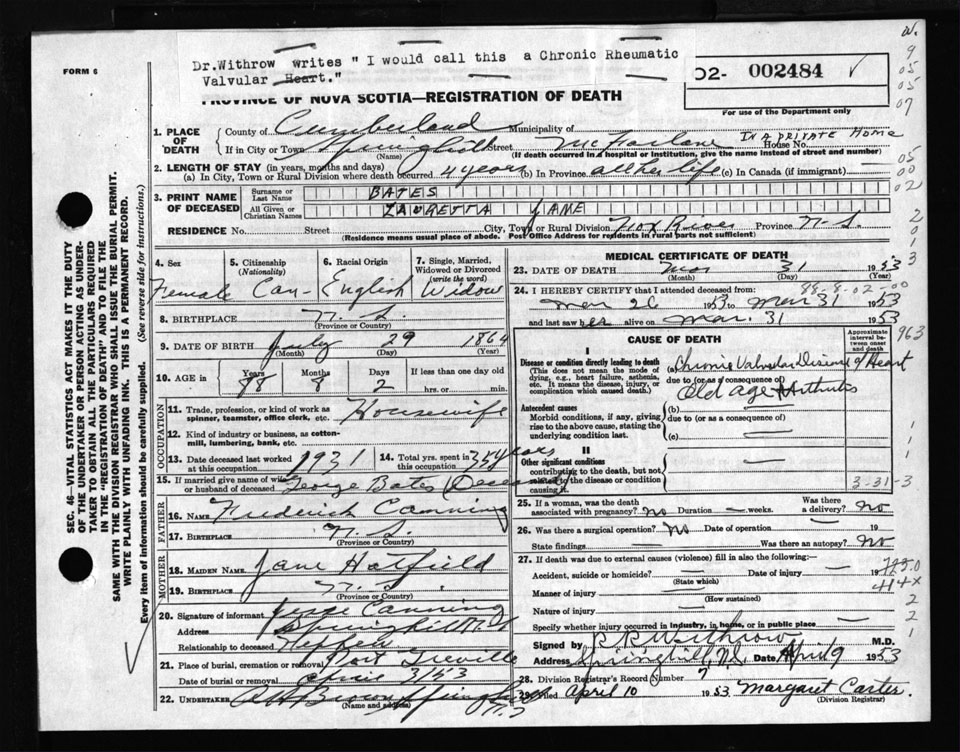 Dr.Withrow writes " I would call this a Chronic Rheumatic
Valvular Heart."
FORM 6
O2- 002484
PROVINCE OF NOVA SCOTIA—REGISTRATION OF DEATH
For use of the Department only
1. PLACE OF DEATH
County of Cumberland Municipality of
If in City or Town Springhill Street McFarlane House No. IN A PRIVATE HOME
(Name) (If death occurred in a hospital or institution, give the name instead of street and number)
2. LENGTH OF STAY (in years, months and days)
(a) In City, Town or Rural Division where death occurred 4 years (b) In Province all her life (c) In Canada (if immigrant)
3. PRINT NAME OF DECEASED
Surname or Last Name BATES
All Given or Christian Names LAURETTA JANE
RESIDENCE No. Street City, Town or Rural Division Fox River Province N.S.
(Residence means usual place of abode. Post Office Address for residents in rural parts not sufficient)
4. Sex Female
5. Citizenship (Nationality) Can-
6. Racial Origin English
7. Single, Married, Widowed or Divorced (write the word) Widow
8. BIRTHPLACE N.S.
(Province or Country)
9. DATE OF BIRTH July 29 1864
(Month) (Day) (Year)
10. AGE in Years 88 Months 8 Days 2 If less than one day old hrs. or min.
OCCUPATION
11. Trade, profession, or kind of work as spinner, teamster, office clerk, etc. Housewife
12. Kind of industry or business, as cotton-mill, lumbering, bank, etc.
13. Date deceased last worked at this occupation 1931
14. Total yrs. spent in this occupation 35 years
15. If married give name of wife or husband of deceased George Bates (Deceased)
FATHER
16. NAME Frederick Canning
17. BIRTHPLACE N.S.
(Province or Country)
MOTHER
18. MAIDEN NAME Jane Hatfield
19. BIRTHPLACE N.S.
(Province or Country)
20. Signature of informant Jesse Canning
Address Springhill N.S.
Relationship to deceased Nephew
21. Place of burial, cremation or removal Port Greville
Date of burial or removal April 3/53
22. UNDERTAKER Brown Springhill N.S
(Name and Address)
MEDICAL CERTIFICATE OF DEATH
23. DATE OF DEATH Mar 31 1953
24. I HEREBY CERTIFY that I attended deceased from:
Mar 26 1953 to Mar 31 1953
and last saw her alive on Mar. 31 1953
CAUSE OF DEATH
Approximate interval between onset and death
I
Disease or condition directly leading to death
(This does not mean the mode of dying, e.g., heart failure, asthenia, etc. It means the disease, injury, or complication which caused death.)
(a) Chronic Valvular Disease of Heart
due to (or as a consequence of)
Old age + Arthritis
Antecedent causes
Morbid conditions, if any, giving rise to the above cause, stating the underlying condition last.
(b)
due to (or as a consequence of)
(c)
II
Other significant conditions
contributing to the death, but not related to the disease or condition causing it.
3-31-3
25. If a woman, was the death associated with pregnancy? No Duration — weeks. Was there a delivery? No
26. Was there a surgical operation? No Date of operation — 19
State findings — Was there an autopsy? No
27. If death was due to external causes (violence) fill in also the following:—
Accident, suicide or homicide? Date of injury 19
(State which)
Manner of injury
(How sustained)
Nature of injury
Specify whether injury occurred in industry, in home, or in public place
Signed by R R Withrow M.D.
Address Springhill, N.S. Date April 9 1953
28. Division Registrar's Record Number 7
29. Filed April 10 1953 Margaret Carter.
(Division Registrar)
SEC. 46—VITAL STATISTICS ACT MAKES IT THE DUTY
OF THE UNDERTAKER OR PERSON ACTING AS UNDER-
TAKER TO OBTAIN ALL THE PARTICULARS REQUIRED
IN THE "REGISTRATION OF DEATH" AND TO FILE THE
SAME WITH THE DIVISION REGISTRAR WHO SHALL ISSUE THE BURIAL PERMIT.
WRITE PLAINLY WITH UNFADING INK. THIS IS A PERMANENT RECORD.
Every item of Information should be carefully supplied. (See reverse side for instructions.)
W.
9
05
05
07
05
00
02
2
0
1
3
88-8-02-00
963
1
1
414x
2
2
1